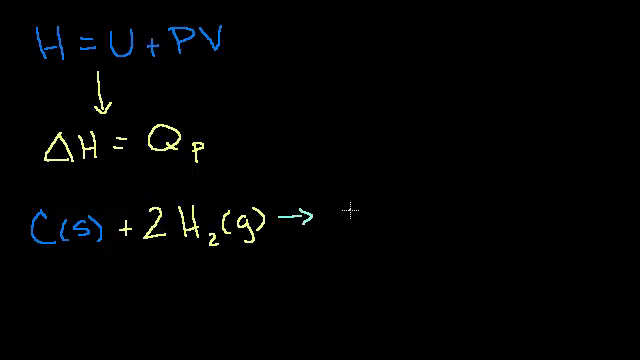 H = U + PV
↓
ΔH = Q_P
C(s) + 2 H₂(g) →